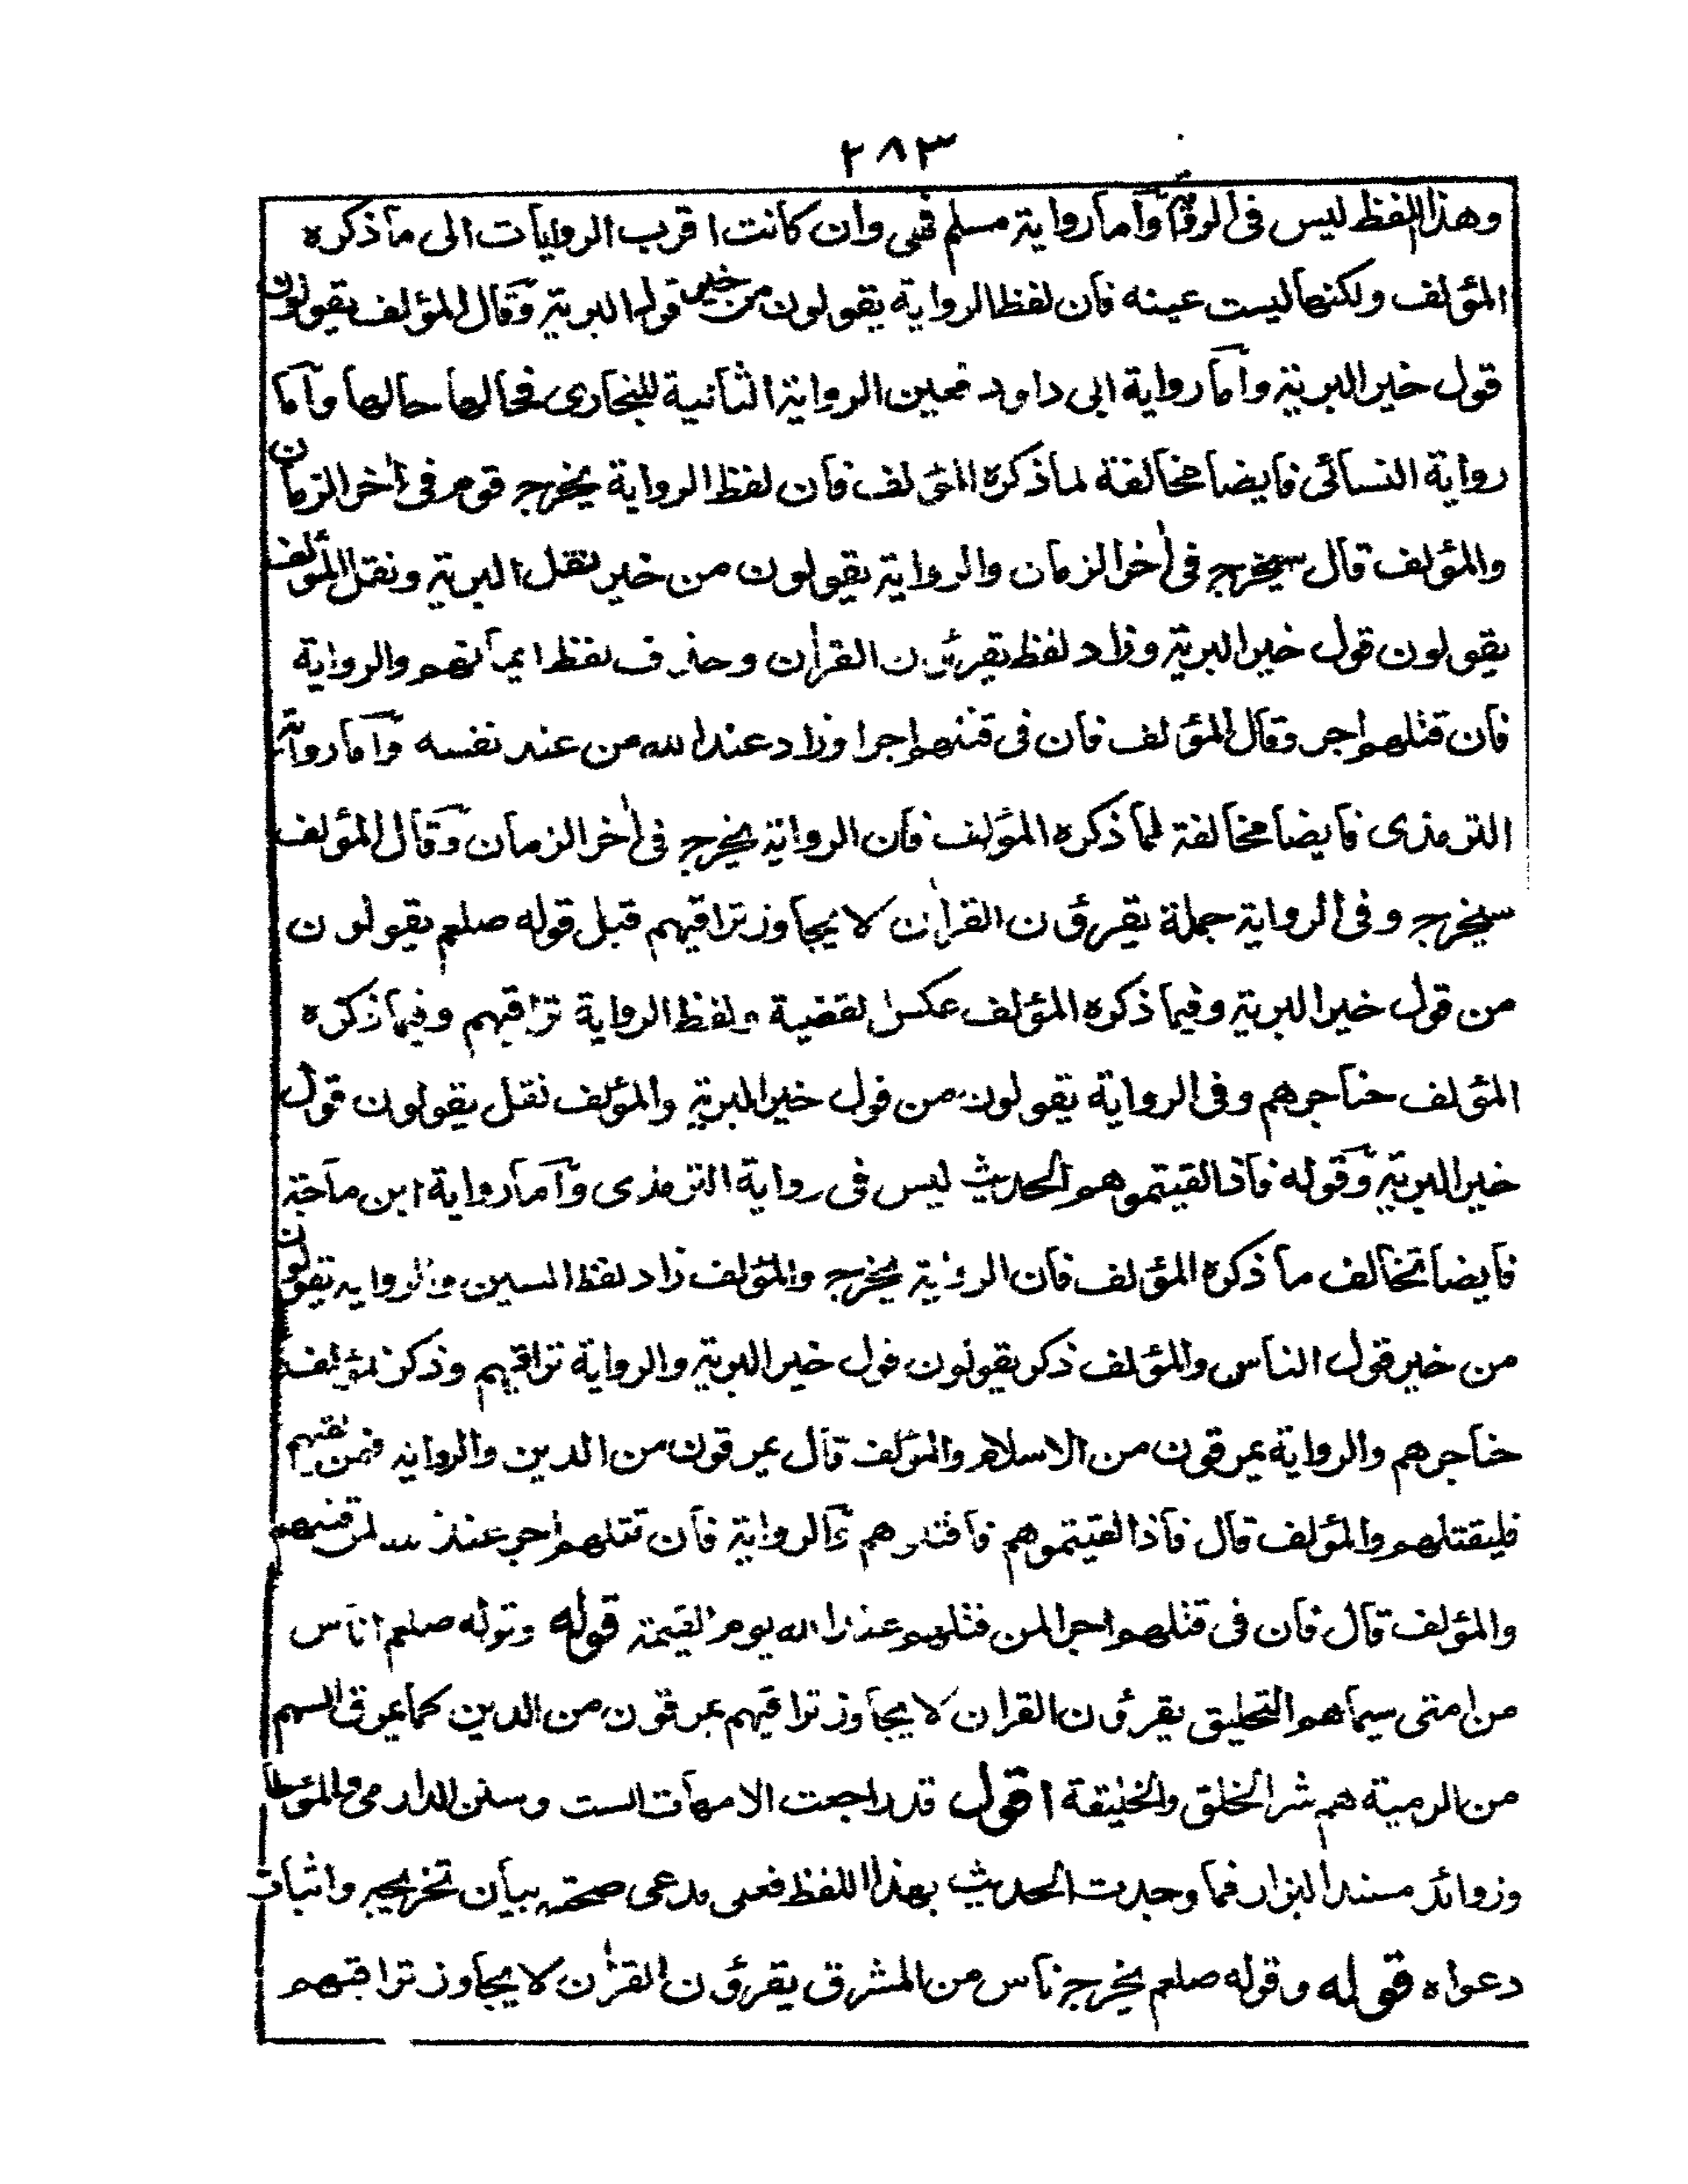 ٢٨٣
وهذا اللفظ ليس في الرواية وأما رواية مسلم فهي وان كانت اقرب الروايات الى ما ذكره
المؤلف ولكنها ليست عينه فان لفظ الرواية يقولون من خير قول البرية وقال المؤلف يقولون
قول خير البرية وأما رواية ابي داود فعين الرواية الثانية للبخاري فحالها حالها وأما
رواية النسائي فايضا مخالفة لما ذكره المؤلف فان لفظ الرواية يخرج قوم في أخر الزمان
والمؤلف قال سيخرج في أخر الزمان والرواية يقولون من خير نقل البرية ونقل المؤلف
يقولون قول خير البرية وزاد لفظ يقرؤن القرأن وحذف لفظ ايمانهم والرواية
فان قتلهم اجر وقال المؤلف فان في قتلهم اجرا وزاد عند الله من عند نفسه وأما رواية
الترمذي فايضا مخالفة لما ذكره المؤلف فان الرواية يخرج في أخر الزمان وقال المؤلف
سيخرج وفي الرواية جملة يقرؤن القرأن لا يجاوز تراقيهم قبل قوله صلعم يقولون
من قول خير البرية وفيما ذكره المؤلف عكس القضية ولفظ الرواية تراقيهم وفيما ذكره
المؤلف حناجرهم وفي الرواية يقولون من قول خير البرية والمؤلف نقل يقولون قول
خير البرية وقوله فاذا لقيتموهم الحديث ليس في رواية الترمذي وأما رواية ابن ماجة
فايضا تخالف ما ذكره المؤلف فان الرواية يخرج والمؤلف زاد لفظ السين والرواية يقولون
من خير قول الناس والمؤلف ذكر يقولون قول خير البرية والرواية تراقيهم وذكر المؤلف
حناجرهم والرواية يمرقون من الاسلام والمؤلف قال يمرقون من الدين والرواية فمن لقيهم
فليقتلهم والمؤلف قال فاذا لقيتموهم فاقتلوهم والرواية فان قتلهم اجر عند الله لمن قتلهم
والمؤلف قال فان في قتلهم اجرا لمن قتلهم عند الله يوم القيمة قوله وقوله صلعم اناس
من امتي سيماهم التحليق يقرؤن القران لا يجاوز تراقيهم يمرقون من الدين كما يمرق السهم
من الرمية هم شر الخلق والخليقة اقول قد راجعت الامهات الست وسنن الدارمي والمؤطا
وزوائد مسند البزار فما وجدت الحديث بهذا اللفظ فعلى مدعى صحته بيان تخريجه واثبات
دعواه قوله وقوله صلعم يخرج ناس من المشرق يقرؤن القرأن لا يجاوز تراقيهم